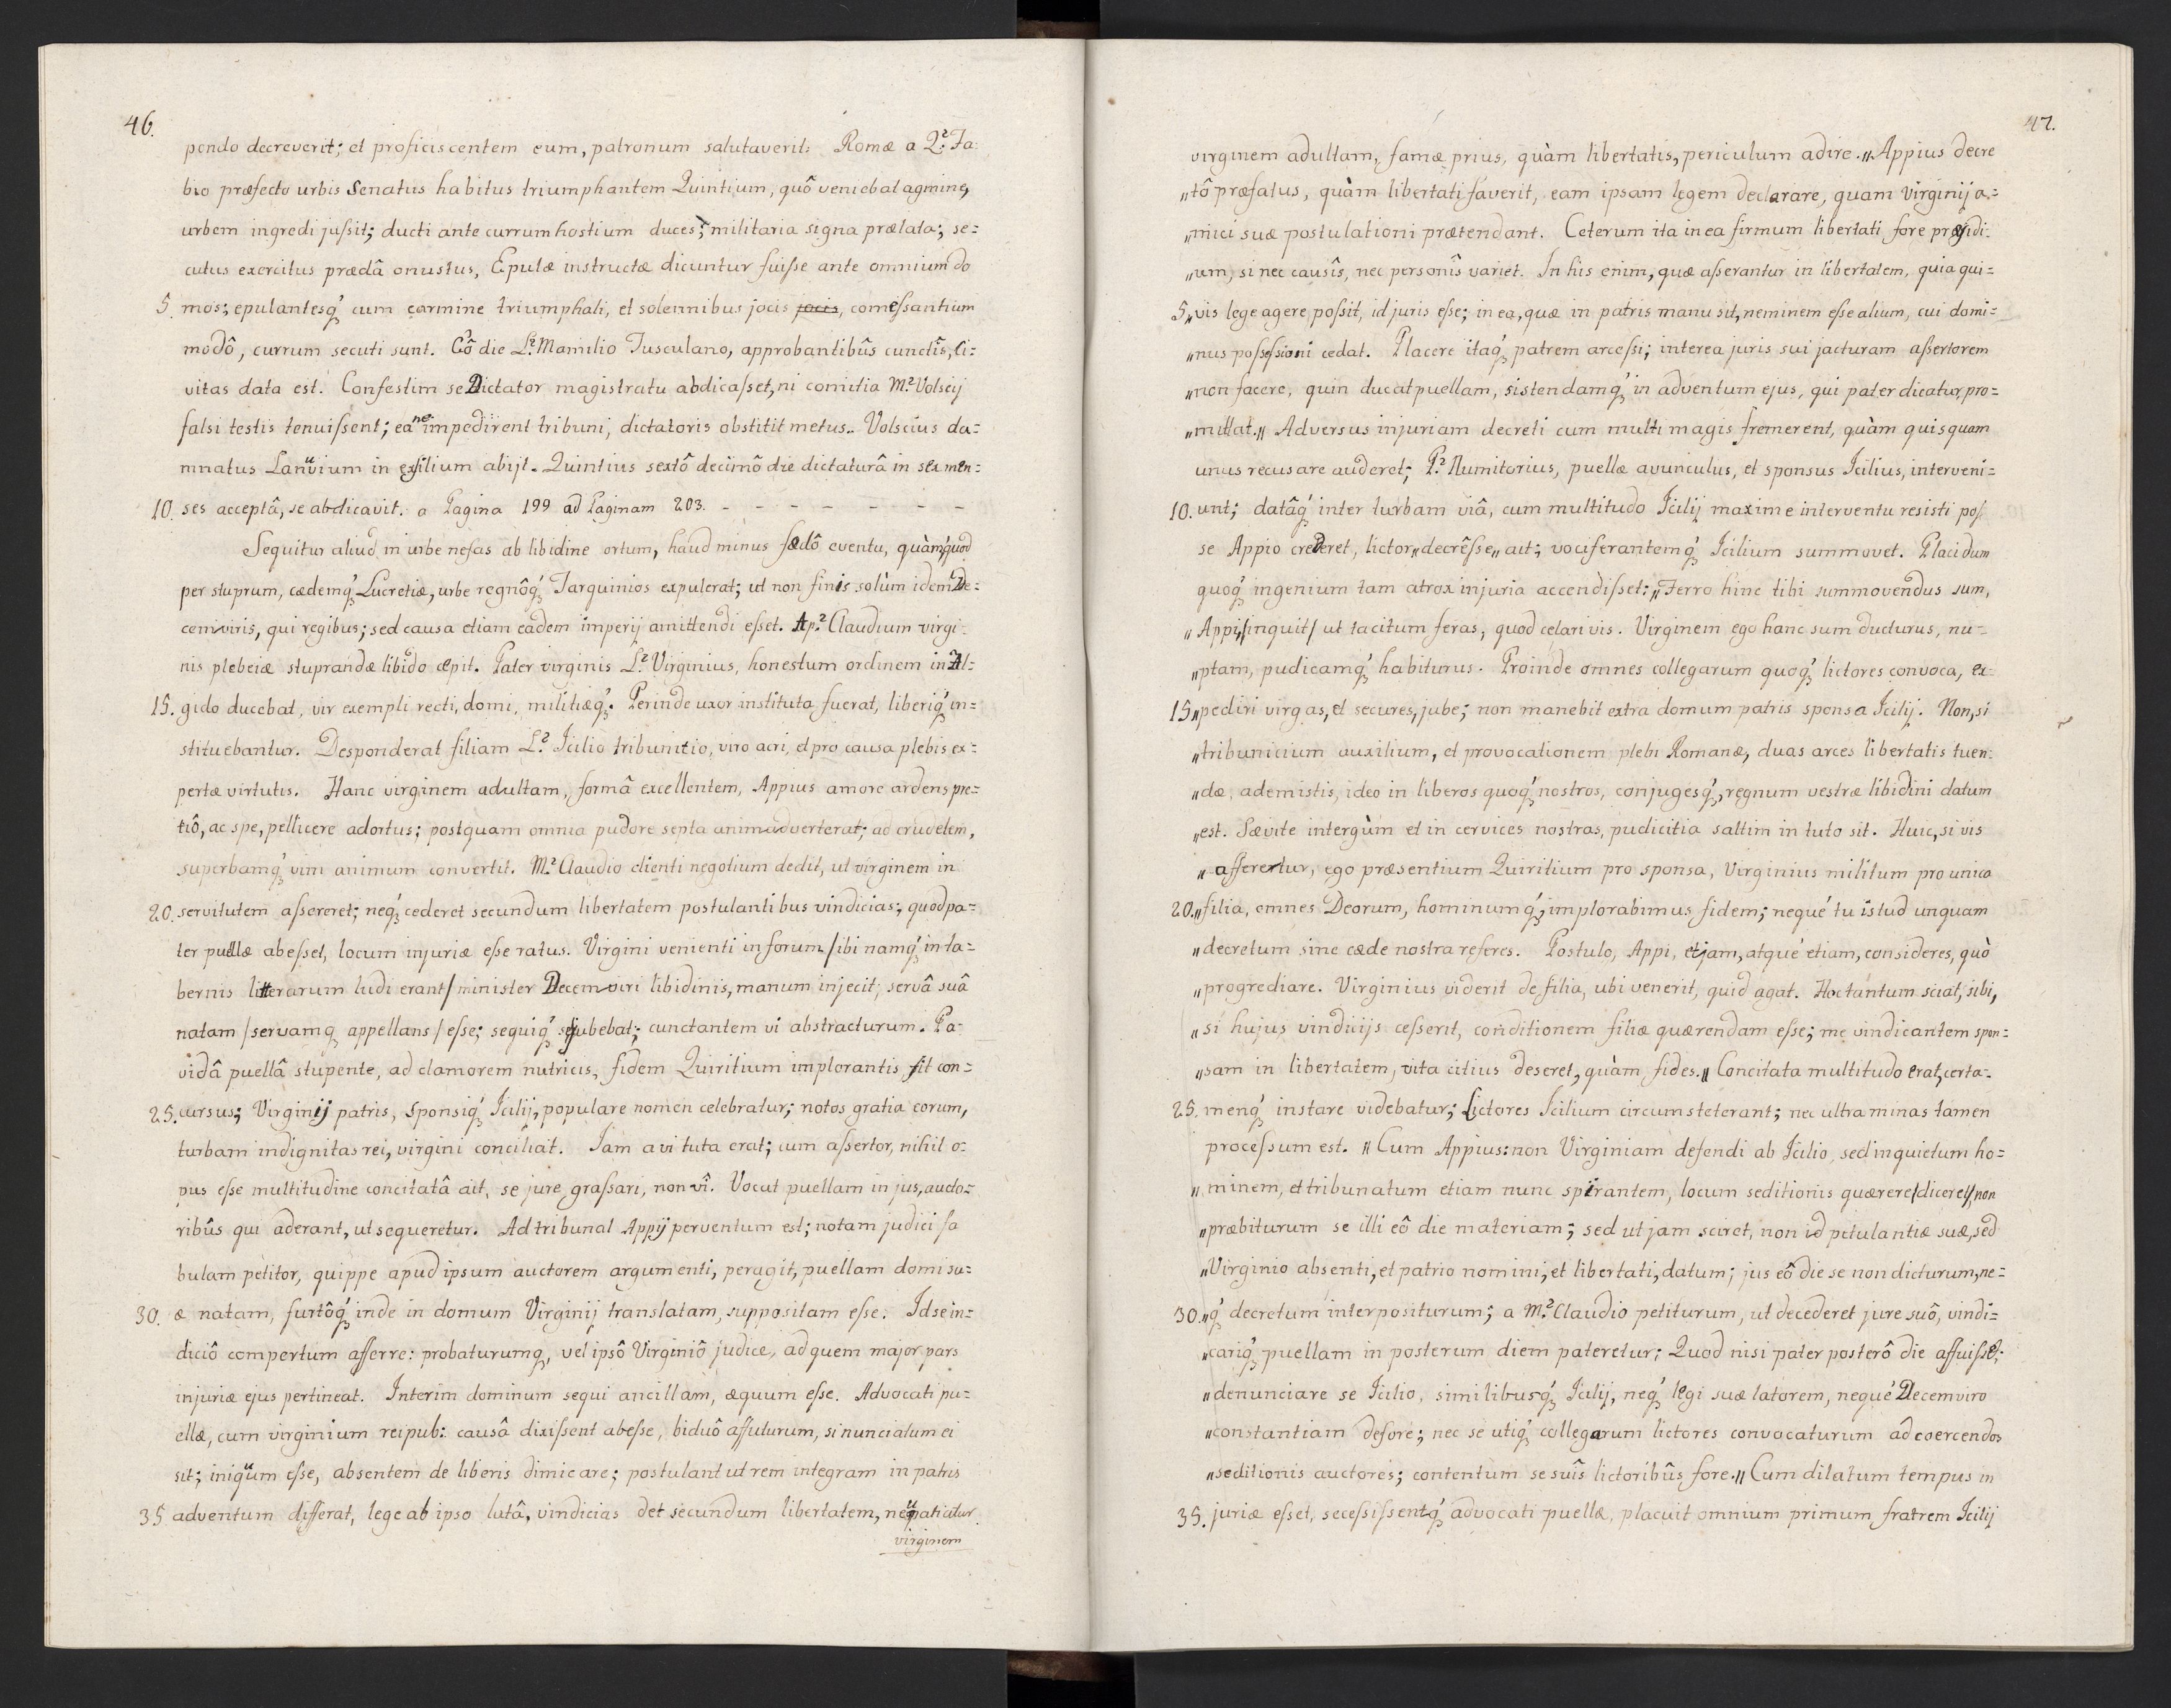 46.
pondo decreverit; et proficiscentem eum, patronum salutaverit: Romæ a Q.º Fa:
bio præfecto urbis Senatus habitus triumphantem Quintium, quô veniebat agmine,
urbem ingredi jussit; ducti ante currum hostium duces; militaria signa prælata; se=
cutus exercitus prædâ onustus, Epulæ instructæ dicuntur fuisse ante omnium do
5. mos; epulantesq́ cum carmine triumphali, et solennibus jocis jocis, comessantium
modô, currum secuti sunt. Eô die L.º Mamilio Tusculano, approbantibûs cunctîs, ci=
vitas data est. Confestim se Dictator magistratu abdicasset, ni comitia M.º Volscij
falsi testis tenuissent; ea ne impedirent tribuni, dictatoris obstitit metus. Volscius da=
mnatus Lanuvium in exsilium abijt. Quintius sextô decimô die dictaturâ in sex men=
10. ses acceptâ, se abdicavit. a Pagina 199 ad Paginam 203. - - - - - - -
Sequitur aliud in urbe nefas ab libidine ortum, haud minus fœdô eventu, quàmq́ quod
per stuprum, cædemq́ Lucretiæ, urbe regnôq́ Tarquinios expulerat; ut non finis solùm idem De=
cemviris, qui regibus; sed causa etiam eadem imperij amittendi esset. Ap.º Claudium virgi=
nis plebeiæ stuprandæ libido cepit. Pater virginis L.º Virginius, honestum ordinem in Al=
15. gido ducebat, vir exempli recti, domi, militiæq́. Perinde uxor instituta fuerat, liberiq́ in=
stituebantur. Desponderat filiam L.º Icilio tribunitio, viro acri, et pro causa plebis ex=
pertæ virtutis. Hanc virginem adultam, formâ excellentem, Appius amore ardens pre=
tiô, ac spe, pellicere adortus; postquam omnia pudore septa animadverterat; ad crudelem,
superbamq́ vim animum convertit. M.º Claudio clienti negotium dedit, ut virginem in
20. servitutem assereret; neq́ cederet secundum libertatem postulantibus vindicias; quod pa=
ter puellæ abesset, locum injuriæ esse ratus. Virgini venienti in forum /ibi namq́ in ta=
bernis litterarum ludi erant/ minister Decemviri libidinis, manum injecit; servâ suâ
natam /servamq appellans/ esse; sequiq́ se jubebat; cunctantem vi abstracturum. Pa=
vidâ puellâ stupente, ad clamorem nutricis, fidem Quiritium implorantis fit con=
25. cursus; Virginij patris, Sponsiq́ Icilij, populare nomen celebratur; notos gratia eorum,
turbam indignitas rei, virgini conciliat. Iam a vi tuta erat; cum assertor, nihil o=
pus esse multitudine concitatâ ait, se jure grassari, non vî. Vocat puellam in jus, aucto=
ribûs qui aderant, ut sequeretur. Ad tribunal Appij perventum est; notam judici fa
bulam petitor, quippe apud ipsum auctorem argumenti, peragit, puellam domi su=
30. æ natam, furtôq́ inde in domum Virginij translatam, suppositam esse. Id se in=
diciô compertum afferre: probaturumq, vel ipsô Virginiô judice, ad quem major pars
injuriæ ejus pertineat. Interim dominum sequi ancillam, æquum esse. Advocati pu=
ellæ, cum virginium reipub: causâ dixissent abesse, biduô affuturum, si nunciatum ei
sit; iniquum esse, absentem de liberis dimicare; postulant ut rem integram in patris
35. adventum differat, lege ab ipso latâ, vindicias det secundum libertatem, neu patiatur
virginem
47.
virginem adultam, famæ prius, quàm libertatis, periculum adire. „Appius decre
„tô præfatus, quàm libertati faverit, eam ipsam legem declarare, quam Virginij a=
„mici suæ postulationi prætendant. Ceterum ita in ea firmum libertati fore præsidi=
„um, si nec causîs, nec personîs variet. In his enim, quæ asserantur in libertatem, quia qui=
5. „vis lege agere possit, id juris esse; in ea, quæ in patris manu sit, neminem esse alium, cui domi=
„nus possessioni cedat. Placere itaq́ patrem arcessi; interea juris sui jacturam assertorem
„non facere, quin ducat puellam, sistendamq́ in adventum ejus, qui pater dicatur, pro=
„mittat.„ Adversus injuriam decreti cum multi magis fremerent, quàm quisquam
unus recusare auderet; P.º Numitorius, puellæ avunculus, et sponsus Icilius, interveni=
10. unt; datâq́ inter turbam viâ, cum multitudo Icilij maxime interventu resisti pos
se Appio crederet, lictor „decrêsse„ ait; vociferantemq́ Icilium summovet. Placidum
quoq́ ingenium tam atrox injuria accendisset: „Ferro hinc tibi summovendus sum,
„Appi, /inquit/ ut tacitum feras, quod celari vis. Virginem ego hanc sum ducturus, nu=
„ptam, pudicamq́ habiturus. Proinde omnes collegarum quoq́ lictores convoca, ex=
15. „pediri virgas, et secures, jube; non manebit extra domum patris sponsa Icilij. Non, si
„tribunicium auxilium, et provocationem plebi Romanæ, duas arces libertatis tuen=
„dæ, ademistis, ideo in liberos quoq́ nostros, conjugesq́, regnum vestræ libidini datum
„est. Sævite in tergùm et in cervices nostras, pudicitia saltim in tuto sit. Huic, si vis
„afferetur, ego præsentium Quiritium pro sponsa, Virginius militum pro unica
20. „filia, omnes Deorum, hominumq́, implorabimus fidem; nequé tu istud unquam
„decretum sine cæde nostra referes. Postulo, Appi, etjam, atqué etiam, consideres, quò
„progrediare. Virginius viderit de filia, ubi venerit, quid agat. Hoc tantum sciat, sibi,
„si hujus vindicijs cesserit, conditionem filiæ quærendam esse; me vindicantem spon=
„sam in libertatem, vita citius deseret, quàm fides.„ Concitata multitudo erat, certa=
25. menq́ instare videbatur; Lictores Icilium circumsteterant; nec ultra minas tamen
processum est. „Cum Appius: non Virginiam defendi ab Icilio, sed inquietum ho=
„minem, et tribunatum etiam nunc spirantem, locum seditionis quærere /diceret/, non
„præbiturum se illi eô die materiam; sed ut jam sciret, non id petulantiæ suæ, sed
„Virginio absenti, et patrio nomini, et libertati, datum; jus eô die se non dicturum, ne=
30. „q́ decretum interpositurum; a M.º Claudio petiturum, ut decederet jure suô, vindi=
„cariq́ puellam in posterum diem pateretur; Quod nisi pater posterô die affuisset;
„denunciare se Icilio, similibusq́ Icilij, neq́ legi suæ latorem, nequé Decemviro
„constantiam defore; nec se utiq́ collegarum lictores convocaturum ad coercendos
„seditionis auctores; contentum se suîs lictoribûs fore.„ Cum dilatum tempus in
35. juriæ esset, secessissentq́ advocati puellæ, placuit omnium primum, fratrem Icilij